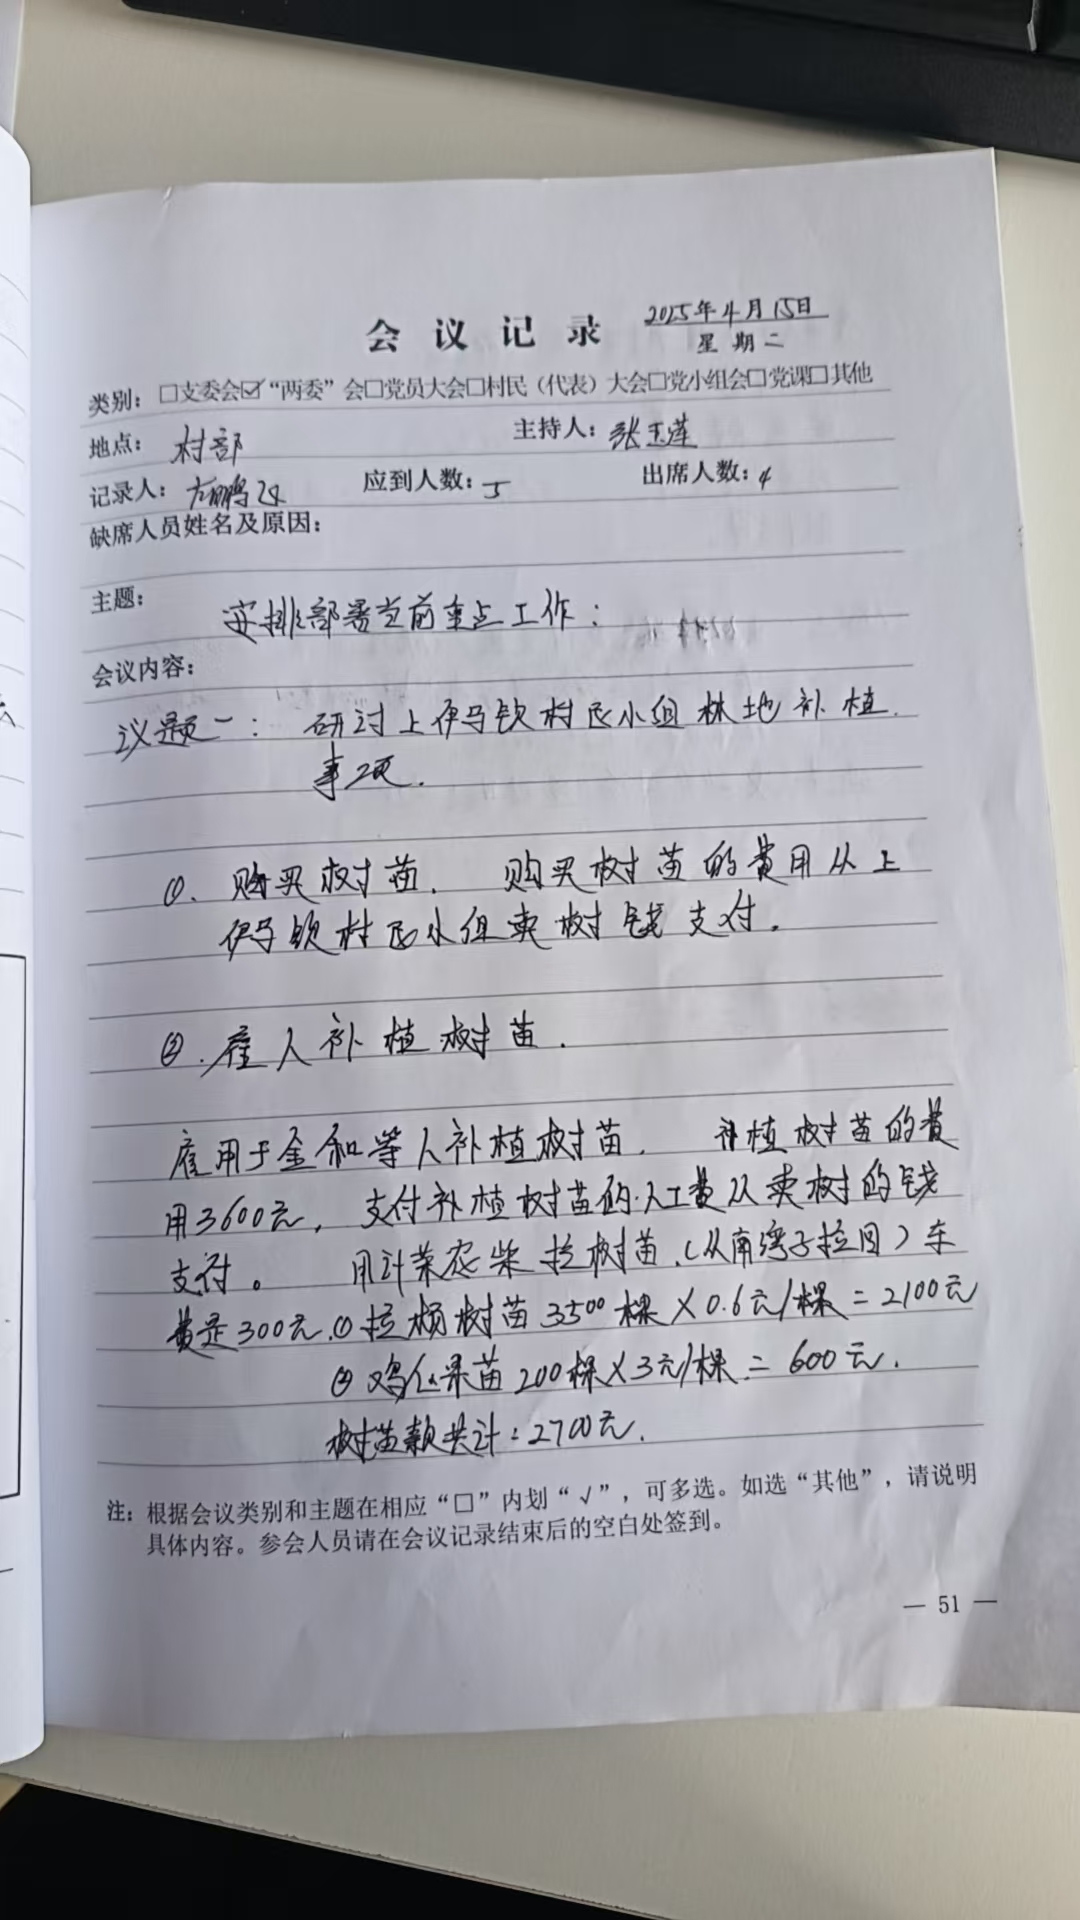 会议记录 2025年4月15日
星期二
类别：□支委会☑“两委”会□党员大会□村民（代表）大会□党小组会□党课□其他
地点：村部 主持人：张玉莲
记录人： 应到人数：5 出席人数：4
缺席人员姓名及原因：
主题：安排部署当前重点工作：
会议内容：
议题一：研讨上伊马钦村民小组林地补植
事项.
①.购买树苗. 购买树苗的费用从上
伊马钦村民小组卖树钱支付.
②.雇人补植树苗.
雇用于金和等人补植树苗. 补植树苗的费
用3600元, 支付补植树苗的人工费从卖树的钱
支付。 用计荣农柴拉树苗.(从南湾子拉回)车
费是300元.①拉 树苗3500棵×0.6元/棵=2100元
② 果苗200棵×3元/棵=600元.
树苗款共计:2700元.
注：根据会议类别和主题在相应“□”内划“√”，可多选。如选“其他”，请说明
具体内容。参会人员请在会议记录结束后的空白处签到。
— 51 —